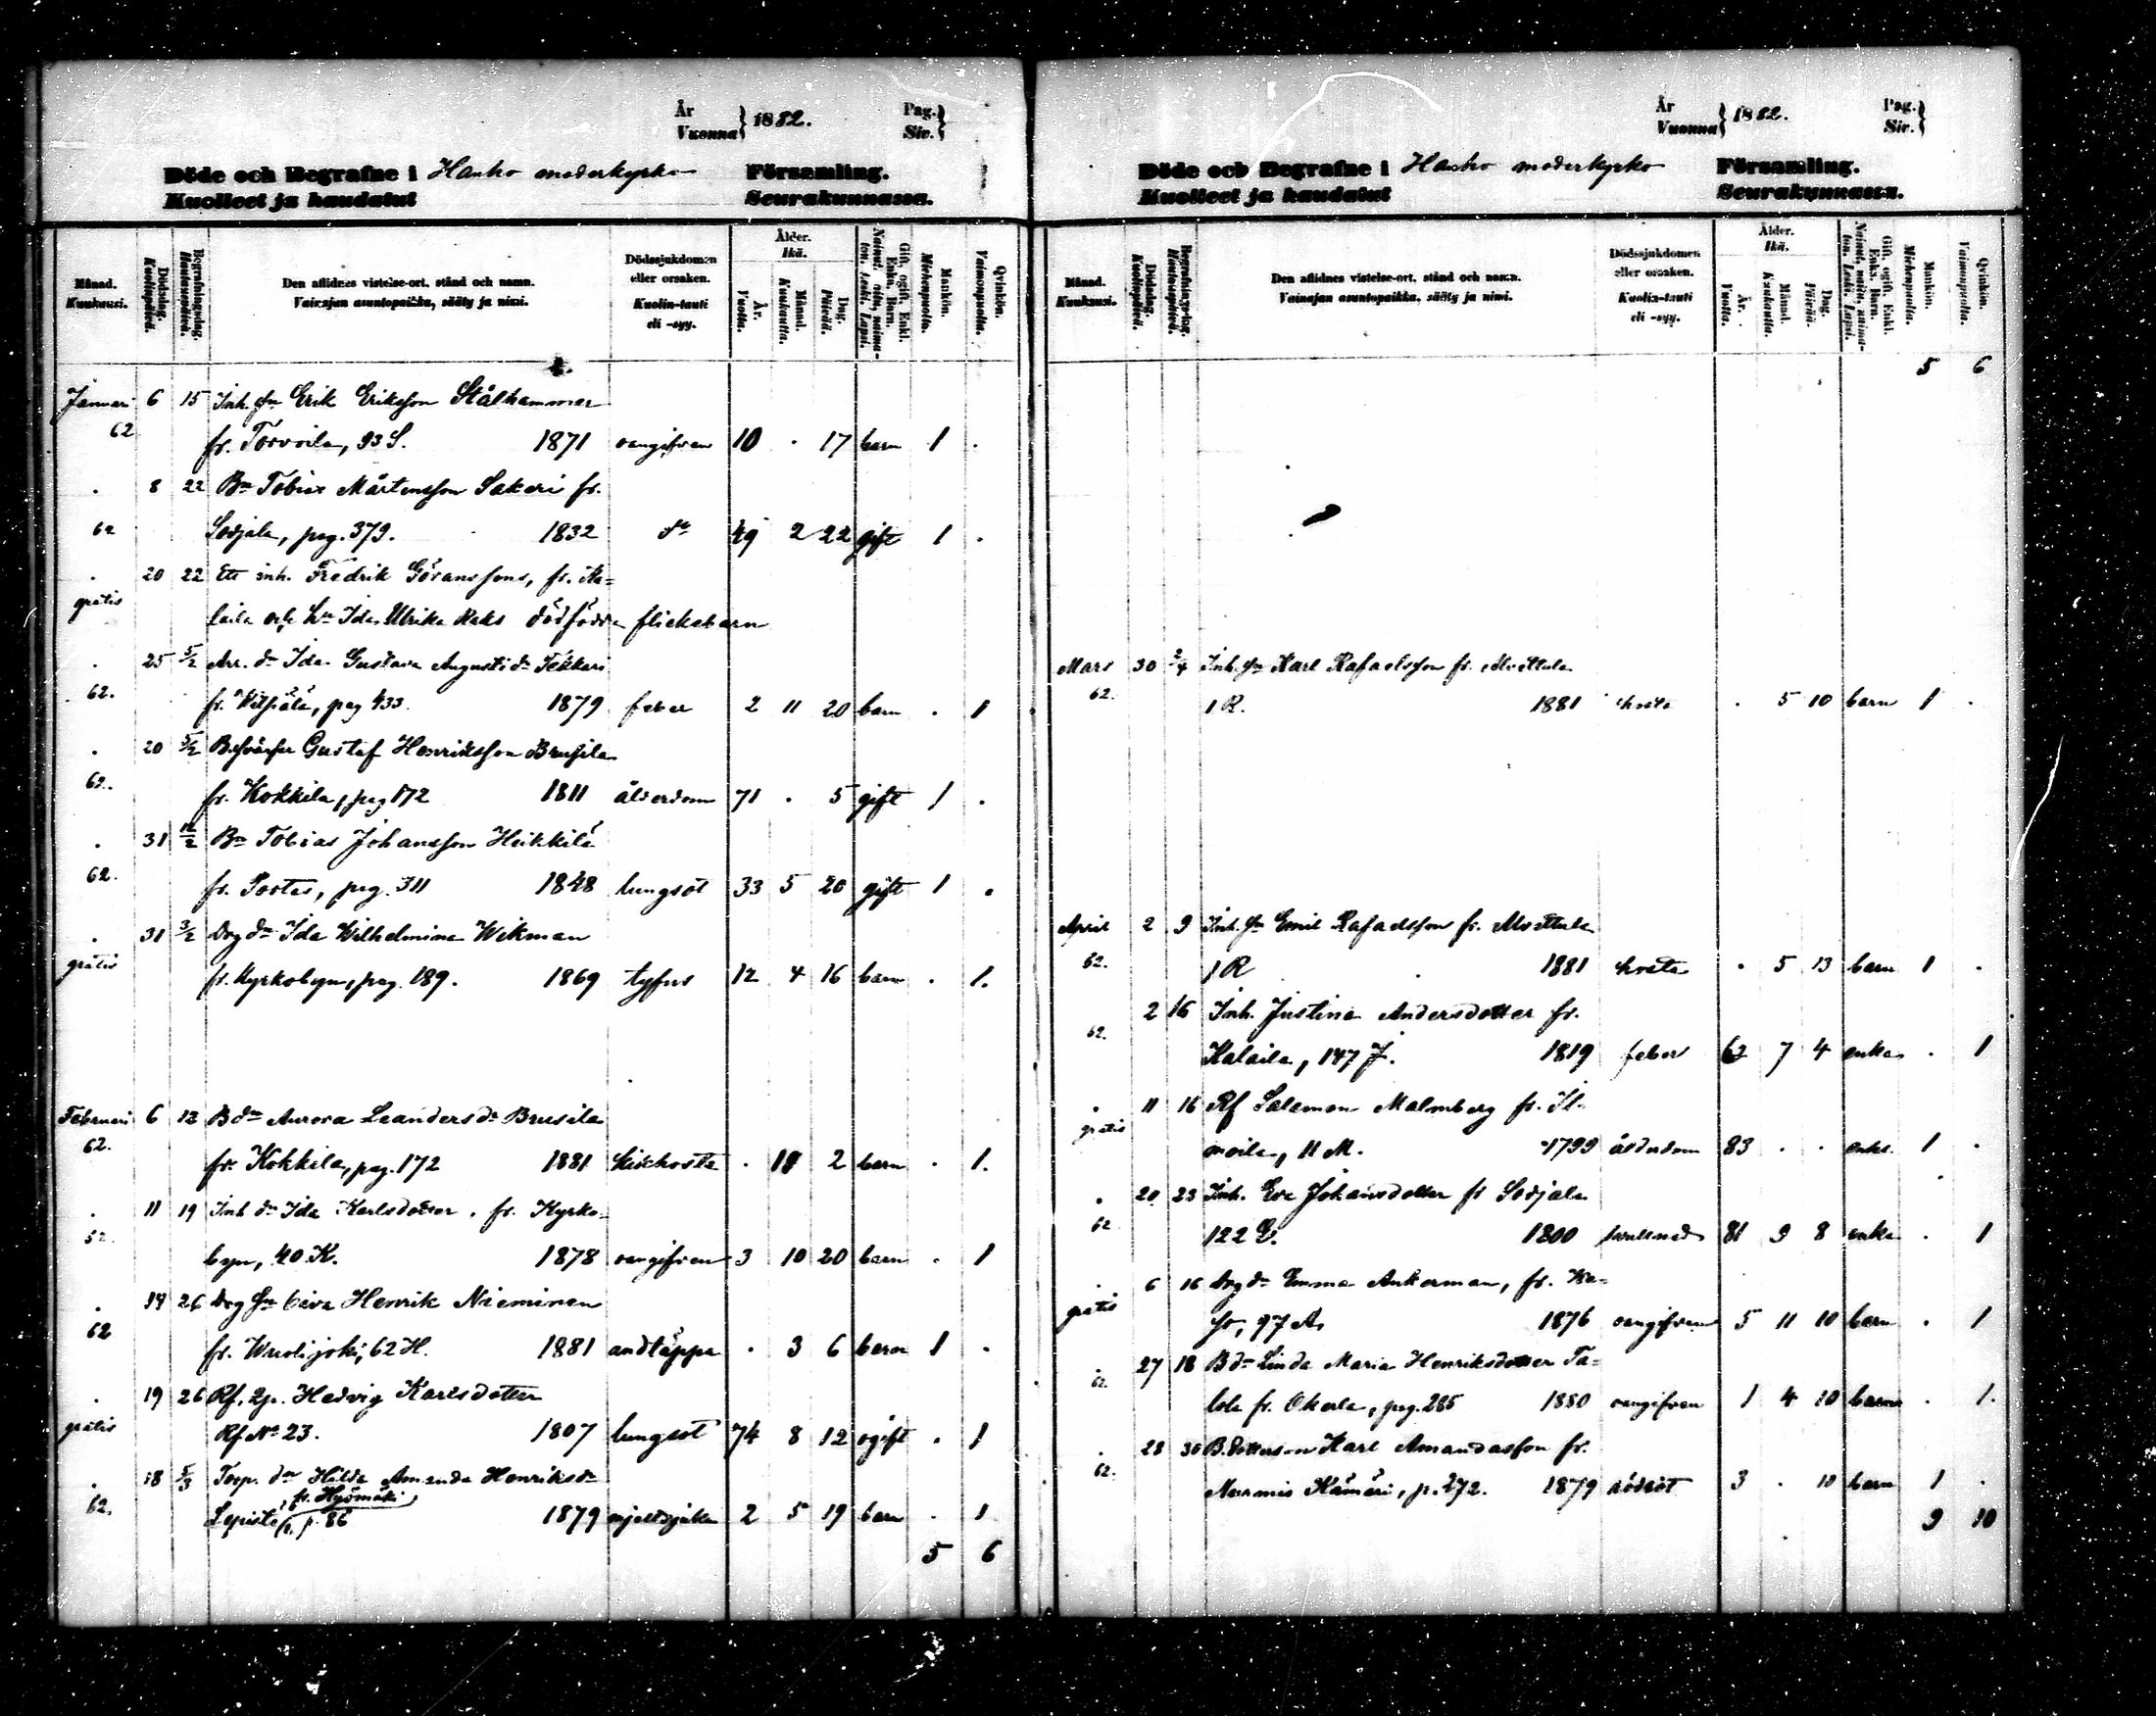 År
Vuonna } 1882. Pag.
Siv. }
Döde och Begrafne i Hauho moderkyrko Församling.
Kuolleet ja haudatut Seurakunnassa.
Månad. Kuukausi. Dödsdag. Kuolinpäivä. Begrafningsdag. Hautauspäivä. Den aflidnes vistelse-ort, stånd och namn. Vainajan asuntopaikka, sääty ja nimi. Dödssjukdomen eller orsaken. Kuolin-tauti eli -syy. Ålder. Ikä. År. Vuotta. Månad. Kuukautta. Dag. Päivää. Gift, ogift, Enkl. Enka, Barn. Nainut, naitu, naimaton, Leski, Lapsi. Mankön. Miehenpuolta. Qvinkön. Vaimonpuolta.
Januari 6 15 Inh. sn Erik Eriksson Stålhammar
62 fr. Torvoila, 93 S. 1871 oangifven 10 . 17 barn 1 .
. 8 22 Bn Tobias Mårtensson Sakeri fr.
62 Sodjala, pag. 379. 1832 do 49 2 22 gift 1 .
. 20 22 Ett inh. Fredrik Göranssons, fr. Ka=
gratis laila och hu Ida Ulrika Raks dödfödda flickebarn
. 25 5/2 Arr. dr Ida Gustava Augusti dr Tekkari
62. fr. Witsiälä, pag 433. 1879 feber 2 11 20 barn . 1
. 20 5/2 Gustaf Henriksson Brusila
62. fr. Kokkila, pag 172 1811 ålderdom 71 . 5 gift 1 .
. 31 12/2 Bn Tobias Johansson Heikkilä
62. fr. Portas, pag. 311 1848 lungsot 33 5 20 gift 1 .
. 31 3/2 Drg dr Ida Wilhelmina Wikman
gratis fr. Kyrkobyn, pag. 189. 1869 tyfus 12 4 16 barn . 1.
Februari 6 12 B dr Aurora Leanders dr Brusila
62. fr. Kokkila, pag. 172 1881 kikhosta . 2 barn . 1.
. 11 19 Inh dr Ida Karlsdotter . fr. Kyrko-
62. byn, 40 K. 1878 oangifven 3 10 20 barn . 1
. 19 26 Drg sn Henrik Nieminen
62 fr. Wuolijoki, 62 H. 1881 andtäppa . 3 6 barn 1 .
. 19 26 Rf. Hedvig Karlsdotter
gratis Rf No 23. 1807 lungsot 74 8 12 ogift . 1
. 18 5/3 Torp. dr Hilda Amanda Henriksdr
fr. Hyömäki
62. Lepistö p. 86 1879 mjeltsjuka 2 5 19 barn . 1
5 6
År
Vuonna } 1882. Pag.
Siv. }
Döde och Begrafne i Hauho moderkyrko Församling.
Kuolleet ja haudatut Seurakunnassa.
Månad. Kuukausi. Dödsdag. Kuolinpäivä. Begrafningsdag. Hautauspäivä. Den aflidnes vistelse-ort, stånd och namn. Vainajan asuntopaikka, sääty ja nimi. Dödssjukdomen eller orsaken. Kuolin-tauti eli -syy. Ålder. Ikä. År. Vuotta. Månad. Kuukautta. Dag. Päivää. Gift, ogift, Enkl. Enka, Barn. Nainut, naitu, naimaton, Leski, Lapsi. Mankön. Miehenpuolta. Qvinkön. Vaimonpuolta.
5 6
Mars 30 2/4 Inh. sn Karl Rafaelsson fr. Miettula
62. 1 R. 1881 hosta . 5 10 barn 1 .
April 2 9 Inh. sn Emil Rafaelsson fr. Miettula
62. 1 R 1881 hosta . 5 13 barn 1 .
2 16 Inh. Justina Andersdotter fr.
62. Kalaila, 147 J. 1819 feber 62 7 4 enka . 1
. 11 16 Rf Salomon Malmberg fr. Il-
gratis moila, 11 M. 1799 ålderdom 83 . . enkl. 1 .
. 20 23 Inh. Eva Johansdotter fr Sodjala
62 122 E. 1800 svullnad 81 9 8 enka . 1
. 6 16 Drg dr Emma Ankerman, fr. Ka=
gratis 97 A. 1876 oangifven 5 11 10 barn . 1
. 27 18 B dr Linda Maria Henriksdotter Ta=
62. lola fr. Okerla, pag. 285 1880 oangifven 1 4 10 barn . 1.
. 28 30 B. Dotterson Karl Amandasson fr.
62. Nurmis Kämäri, p. 272. 1879 rödsot 3 . 10 barn 1 .
9 10